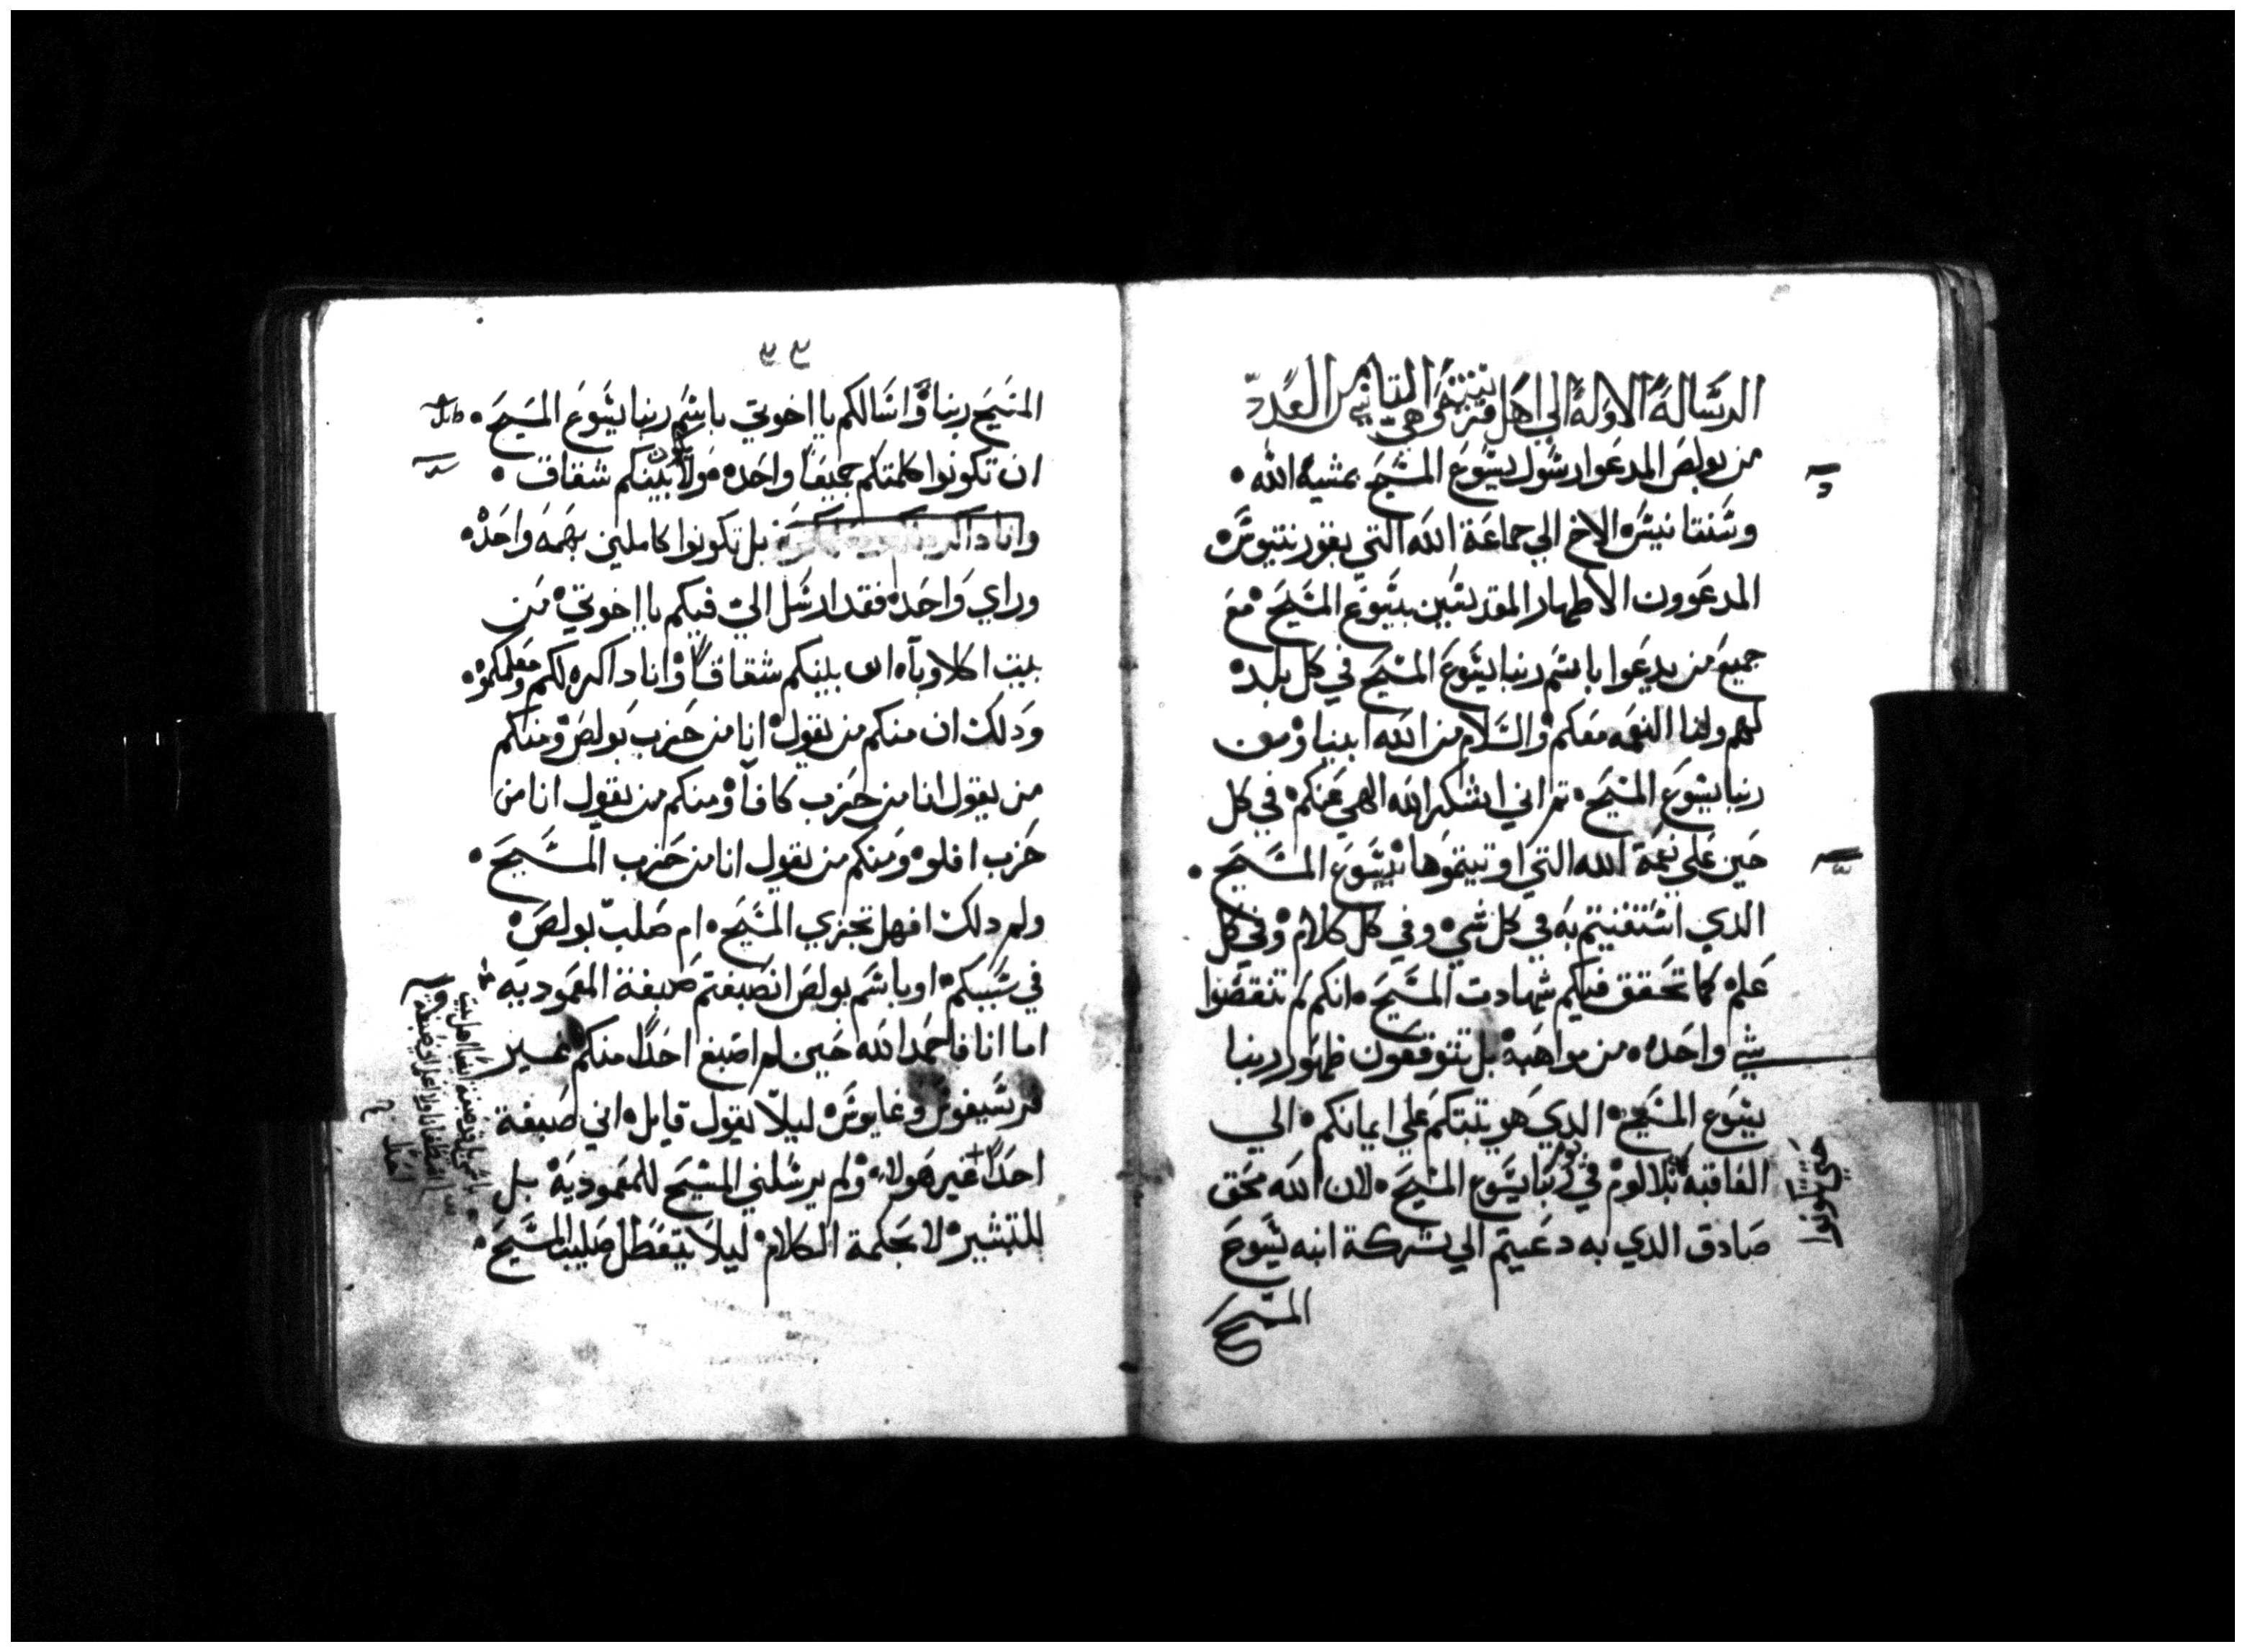 الرسالة الاولة الي اهل قرنتيه وهي التانيه من العدد
من بولص المدعوا رسول يسوع المسيح بمشية الله
وسنتانيس الاخ الي جماعة الله التي بقورنتيوس
المدعوون الاطهار المقديسين بيسوع المسيح مع
جميع من يدعوا باسم ربنا يسوع المسيح في كل بلد
لهم ولنا النعمه معكم والسلام من الله ابينا ومن
ربنا يسوع المسيح تم اني اشكر الله الهي عنكم في كل
حين علي نعمة الله التي اوتيتموها بيسوع المسيح
الدي استغنيتم به في كل شي وفي كل كلام وفي كل
علم كما تحقق فيكم شهادت المسيح انكم لم تنقصوا
شي واحده من مواهبه بل تتوقعون ظهور ربنا
يسوع المسيح الدي هو يتبتكم علي ايمانكم الي
العاقبه بلا لوم في ربنا يسوع المسيح لان الله محق
حتي تكونوا
صادق الدي به دعيتم الي شركة ابنه يسوع
المسيح
المسيح ربنا واسالكم يا اخوتي باسم ربنا يسوع المسيح
ان تكونوا كلمتكم جميعا واحده ولا يكون بينكم شقاق
وانا داكر بل تكونوا كاملين بهمه واحده
وراي واحد فقد ارسل الي فيكم يا اخوتي من
بيت اكلاوباه ان بينكم شقاقا وانا داكره لكم ومعلمكموه
ودلك ان منكم من يقول انا من حزب بولص ومنكم
من يقول انا من حزب كافا ومنكم من يقول انا من
حزب افلو ومنكم من يقول انا من حزب المسيح
ولم دلك افهل تجزي المسيح ام صلب بولص
في سببكم او باسم بولص انصبغتم صبغة المعموديه
اما انا فاحمد الله حين لم اصبغ احدا منكم غير
قرسيفوس وغايوس ليلا يقول قايل اني صبغة
احدا غير هولاء ولم يرسلني المسيح للمعموديه بل
للتبشير لا بحكمة الكلام ليلا يتعطل صليب المسيح